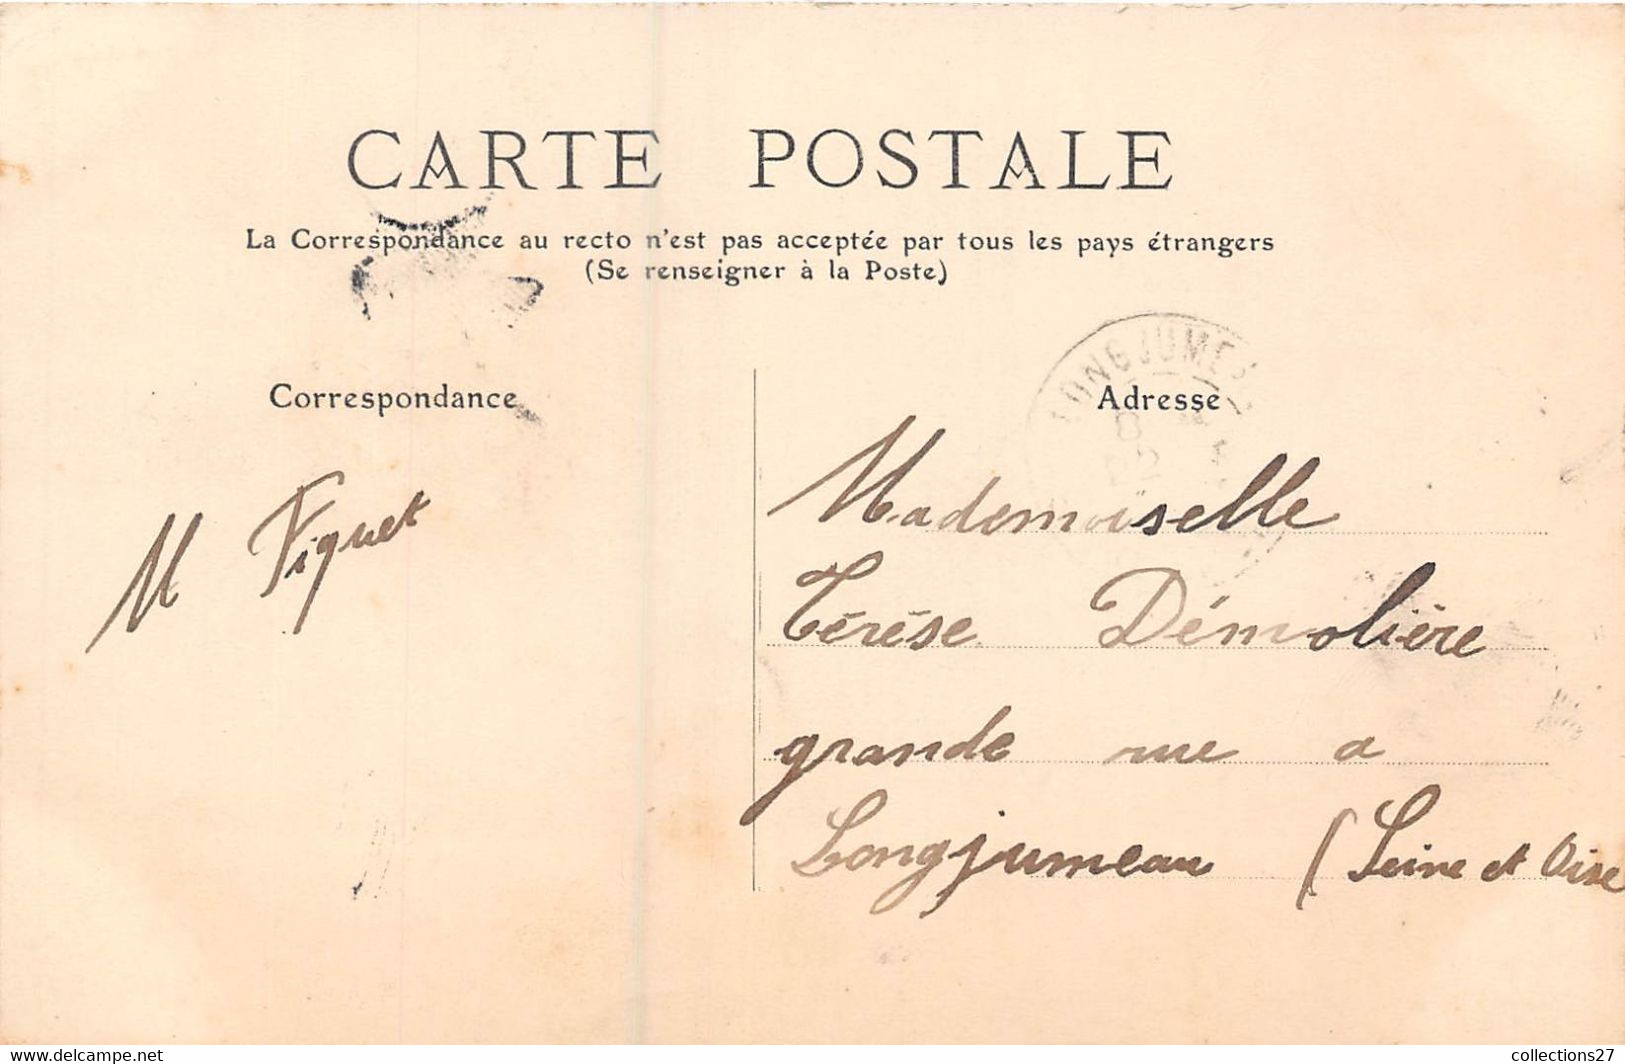 CARTE POSTALE
La Correspondance au recto n'est pas acceptée par tous les pays étrangers
(Se renseigner à la Poste)
Correspondance
M Figuet
Adresse
LONGJUMEAU
Mademoiselle
Térése Démolière
grande rue a
Longjumeau (Seine et Oise
www.delcampe.net
collections27